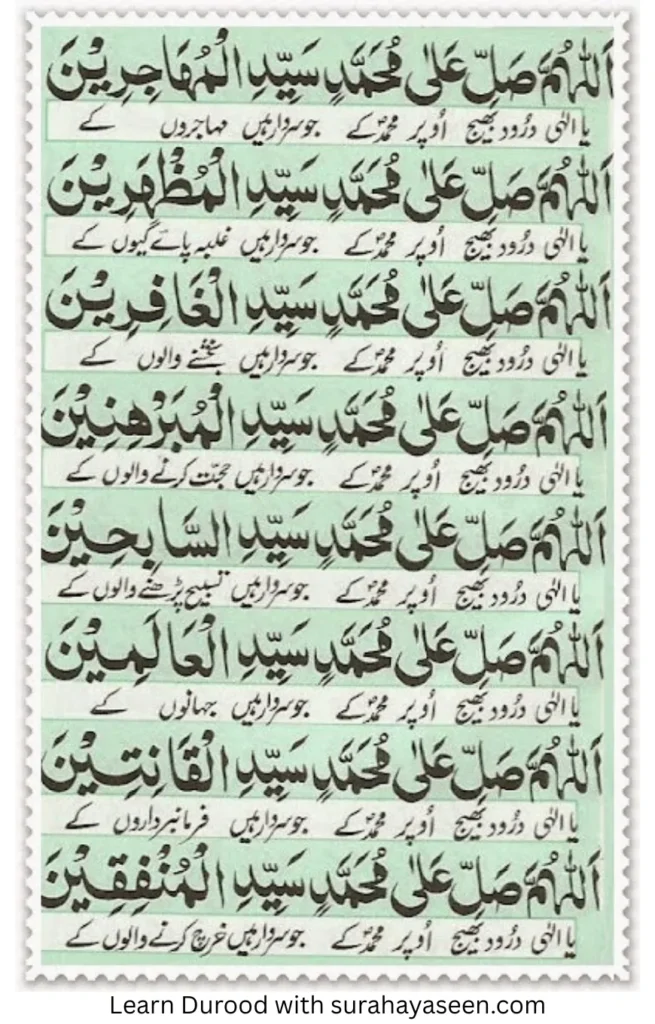 اَللّٰهُمَّ صَلِّ عَلٰى مُحَمَّدٍ سَيِّدِ الْمُهَاجِرِيْنَ
یا الٰہی درُود بھیج اُوپر محمدؐ کے جو سردار ہیں مہاجروں کے
اَللّٰهُمَّ صَلِّ عَلٰى مُحَمَّدٍ سَيِّدِ الْمُظْهَرِيْنَ
یا الٰہی درُود بھیج اُوپر محمدؐ کے جو سردار ہیں غلبہ پائے گیوں کے
اَللّٰهُمَّ صَلِّ عَلٰى مُحَمَّدٍ سَيِّدِ الْغَافِرِيْنَ
یا الٰہی درُود بھیج اُوپر محمدؐ کے جو سردار ہیں بخشنے والوں کے
اَللّٰهُمَّ صَلِّ عَلٰى مُحَمَّدٍ سَيِّدِ الْمُبَرْهِنِيْنَ
یا الٰہی درُود بھیج اُوپر محمدؐ کے جو سردار ہیں حجّت کرنے والوں کے
اَللّٰهُمَّ صَلِّ عَلٰى مُحَمَّدٍ سَيِّدِ السَّابِحِيْنَ
یا الٰہی درُود بھیج اُوپر محمدؐ کے جو سردار ہیں تسبیح پڑھنے والوں کے
اَللّٰهُمَّ صَلِّ عَلٰى مُحَمَّدٍ سَيِّدِ الْعَالَمِيْنَ
یا الٰہی درُود بھیج اُوپر محمدؐ کے جو سردار ہیں جہانوں کے
اَللّٰهُمَّ صَلِّ عَلٰى مُحَمَّدٍ سَيِّدِ الْقَانِتِيْنَ
یا الٰہی درُود بھیج اُوپر محمدؐ کے جو سردار ہیں فرمانبرداروں کے
اَللّٰهُمَّ صَلِّ عَلٰى مُحَمَّدٍ سَيِّدِ الْمُنْفِقِيْنَ
یا الٰہی درُود بھیج اُوپر محمدؐ کے جو سردار ہیں خرچ کرنے والوں کے
Learn Durood with surahayaseen.com